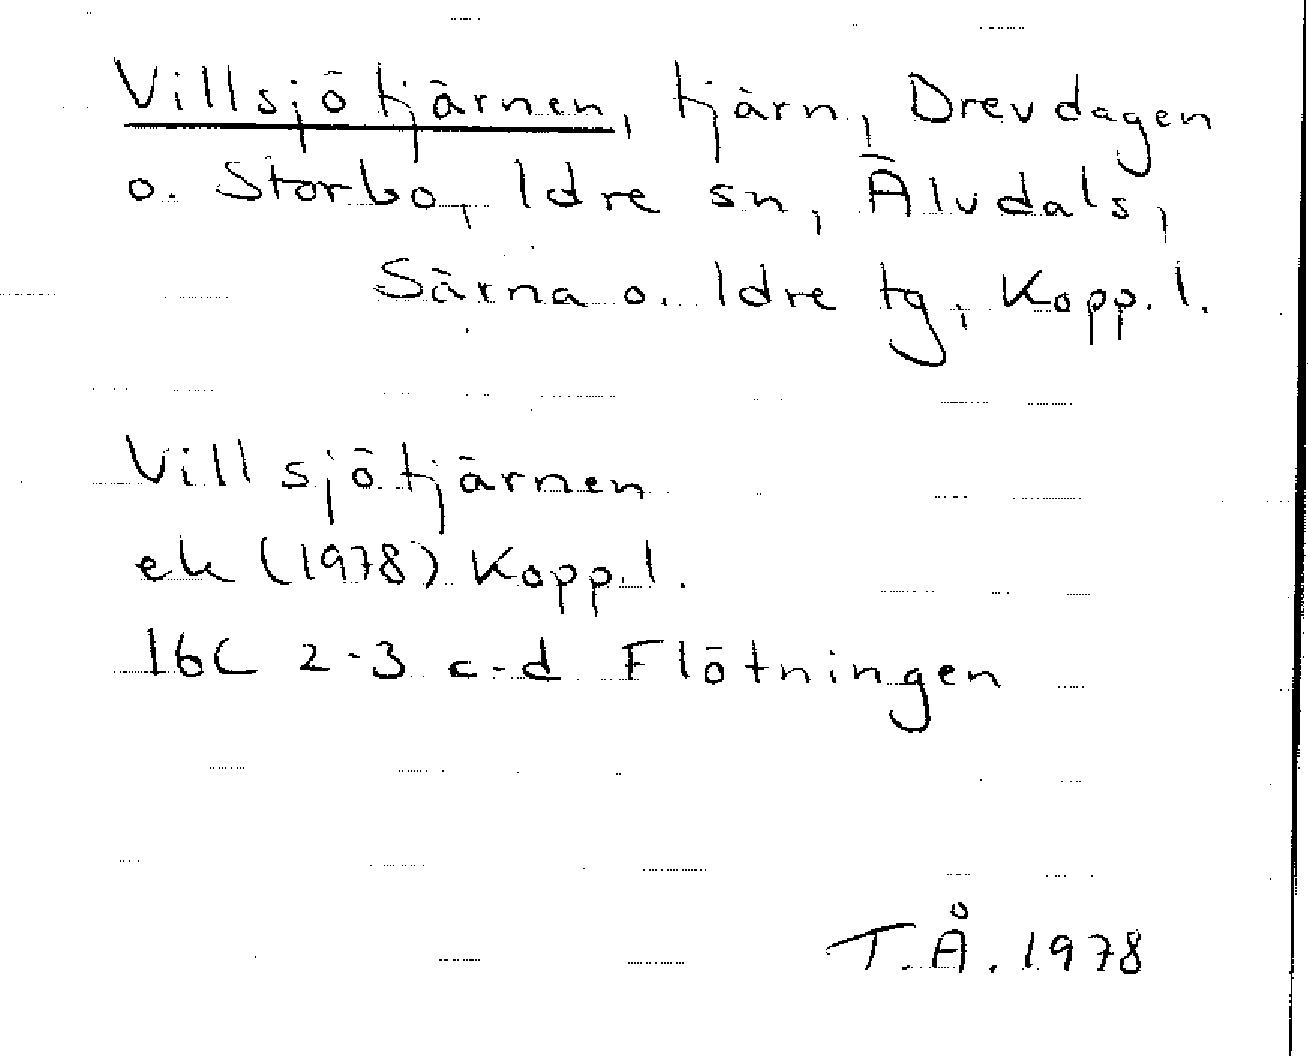 Villsjötjärnen, tjärn, Drevdagen
o. Storbo, Idre sn, Älvdals,
Särna o. Idre tg, Kopp. l.
Villsjötjärnen
ek (1978) Kopp. l.
16C 2-3 c-d Flötningen
T.Å. 1978